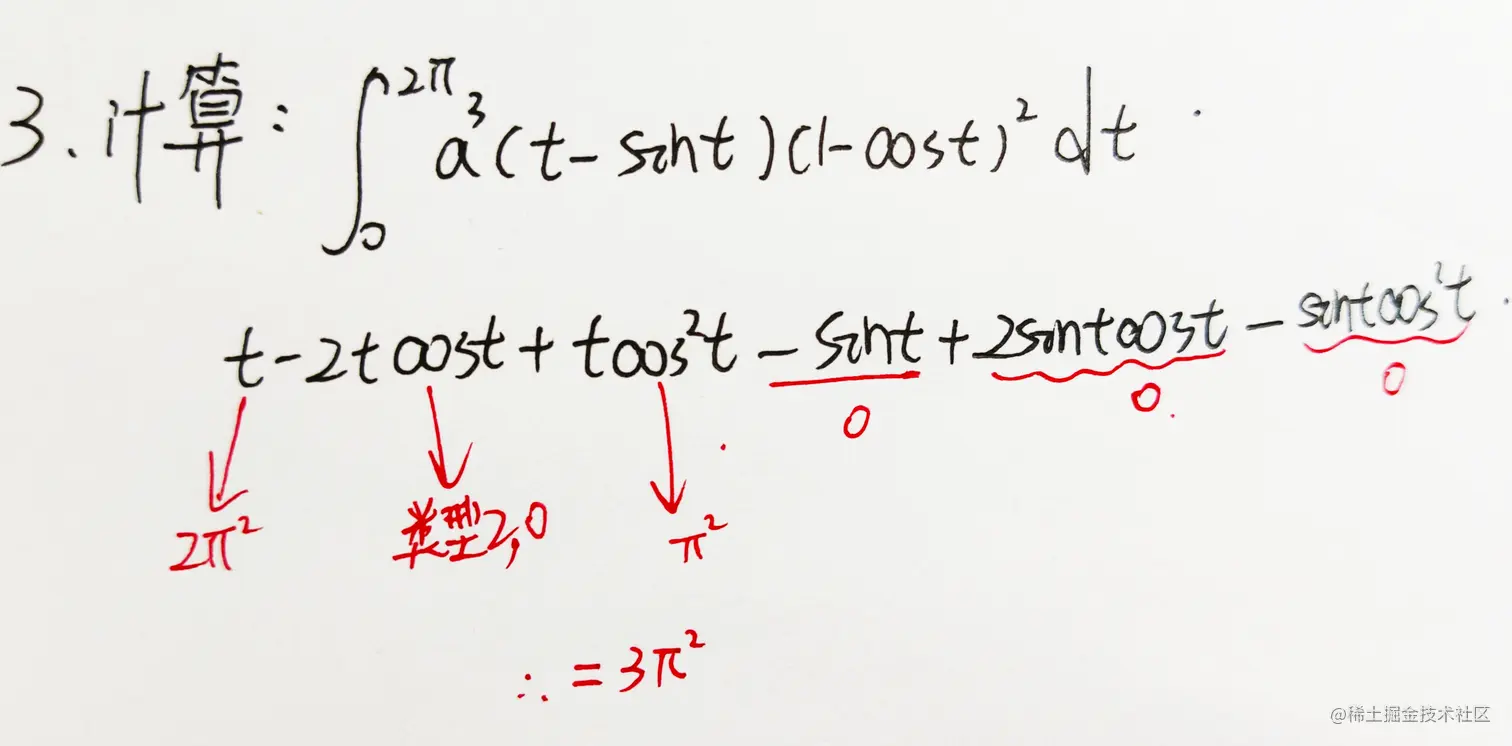 3.计算：∫₀^2π a³(t-sint)(1-cost)²dt.
t-2tcost+tcos²t-sint+2sintcost-sintcos²t.
0 0. 0
2π² 类型2,0 π²
∴ =3π²
@稀土掘金技术社区